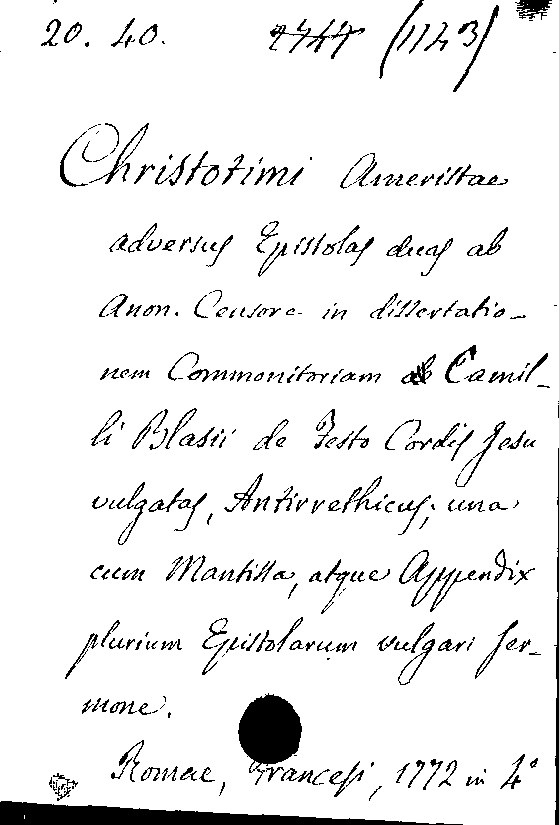 20. 40. 1744 (1123)
Christotimi Ameristae
adversus Epistolas duas ab
Anon. Censore in dissertatio-
nem Commonitoriam Camil-
li Blasii de Festo Cordis Jesu
vulgatas, Antirrethicus; una
cum Mantissa, atque Appendix
plurium Epistolarum vulgari ser-
mone.
Romae, Francesi, 1772 in 4°